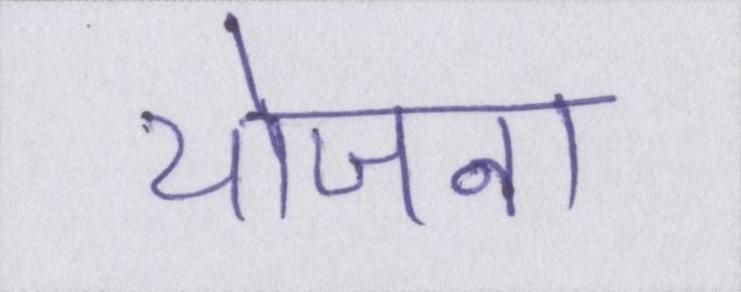 योजना